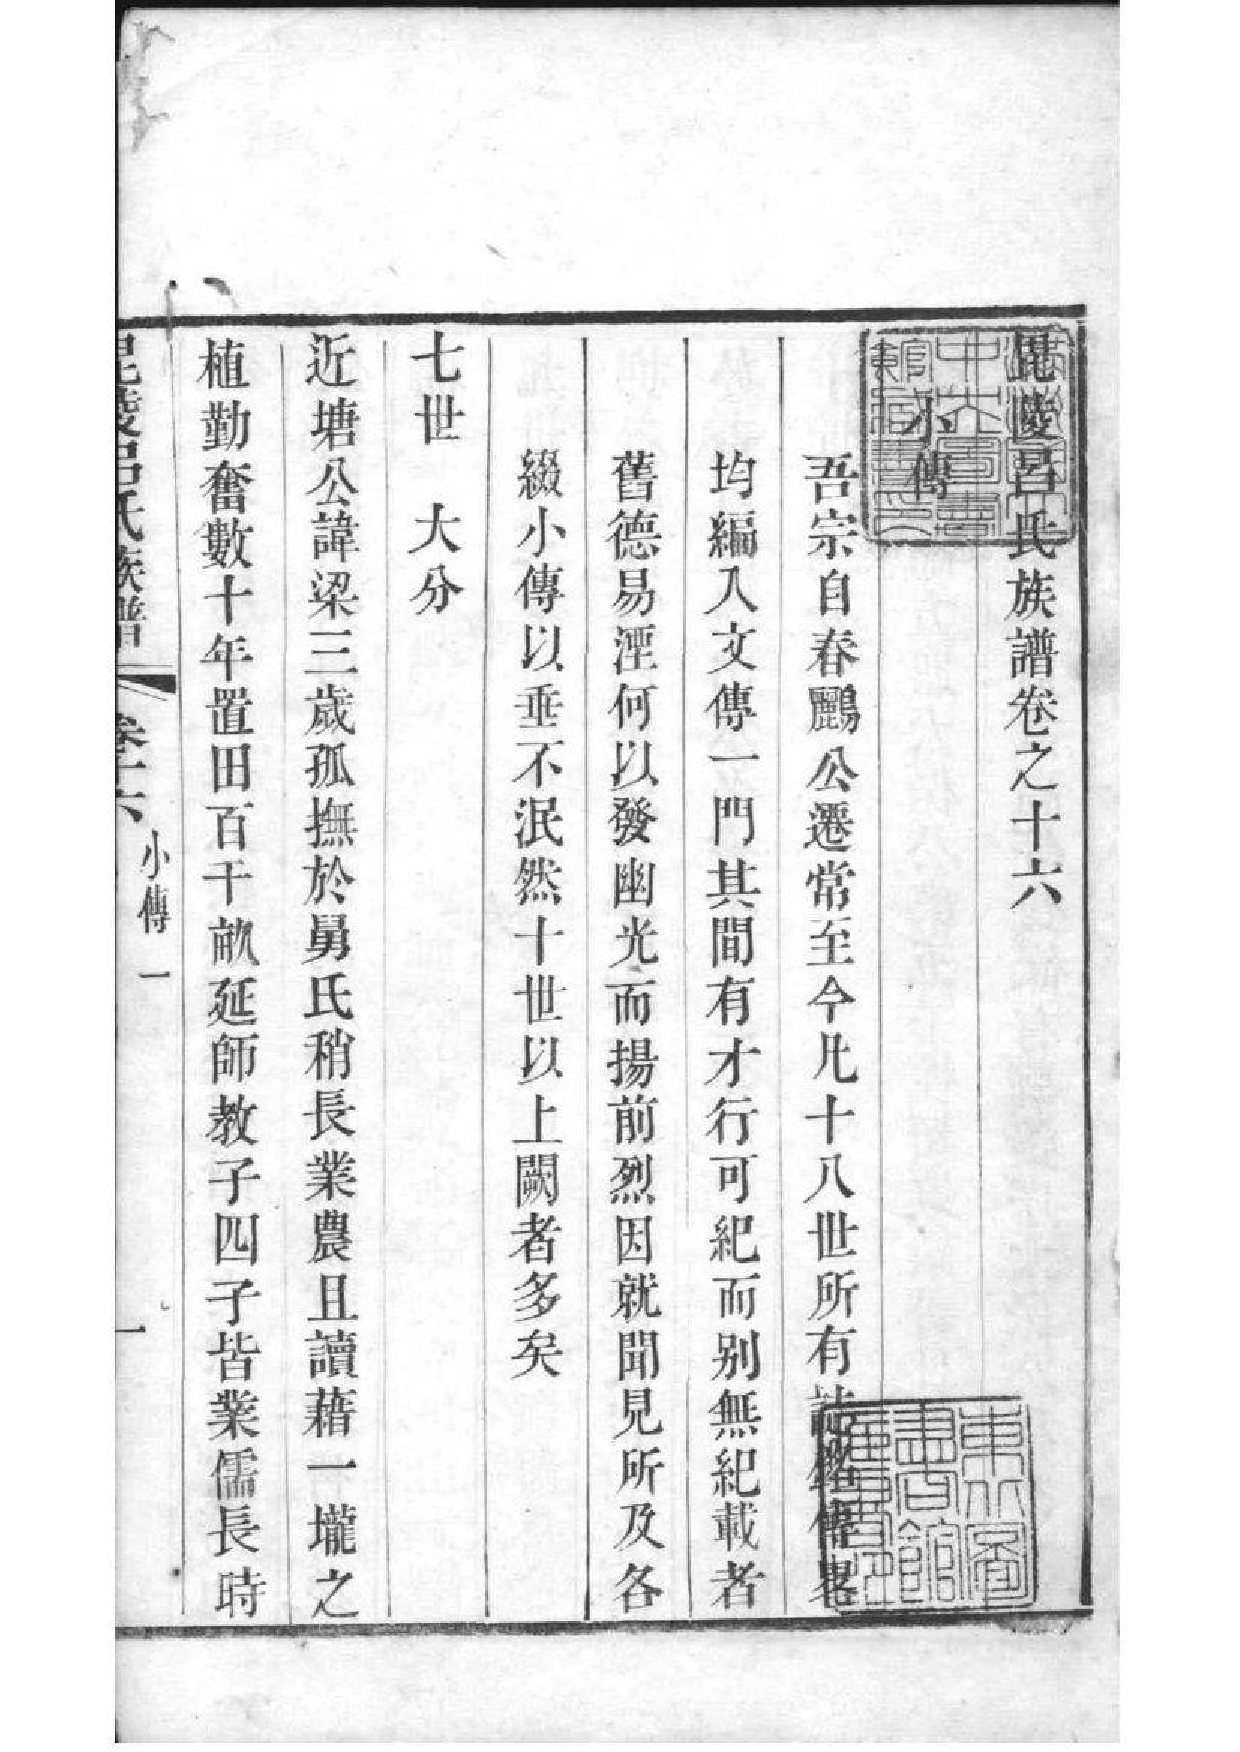 毘陵呂氏族譜卷之十六
小傳
吾宗自春鸝公遷常至今凡十八世所有誌銘傳畧
均編入文傳一門其間有才行可紀而别無紀載者
舊德易湮何以發幽光而揚前烈因就聞見所及各
綴小傳以垂不泯然十世以上闕者多矣
七世 大分
近塘公諱梁三歲孤撫於舅氏稍長業農且讀藉一壠之
植勤奮數十年置田百千畝延師教子四子皆業儒長時
毘陵呂氏族譜 卷十六 小傳一 一